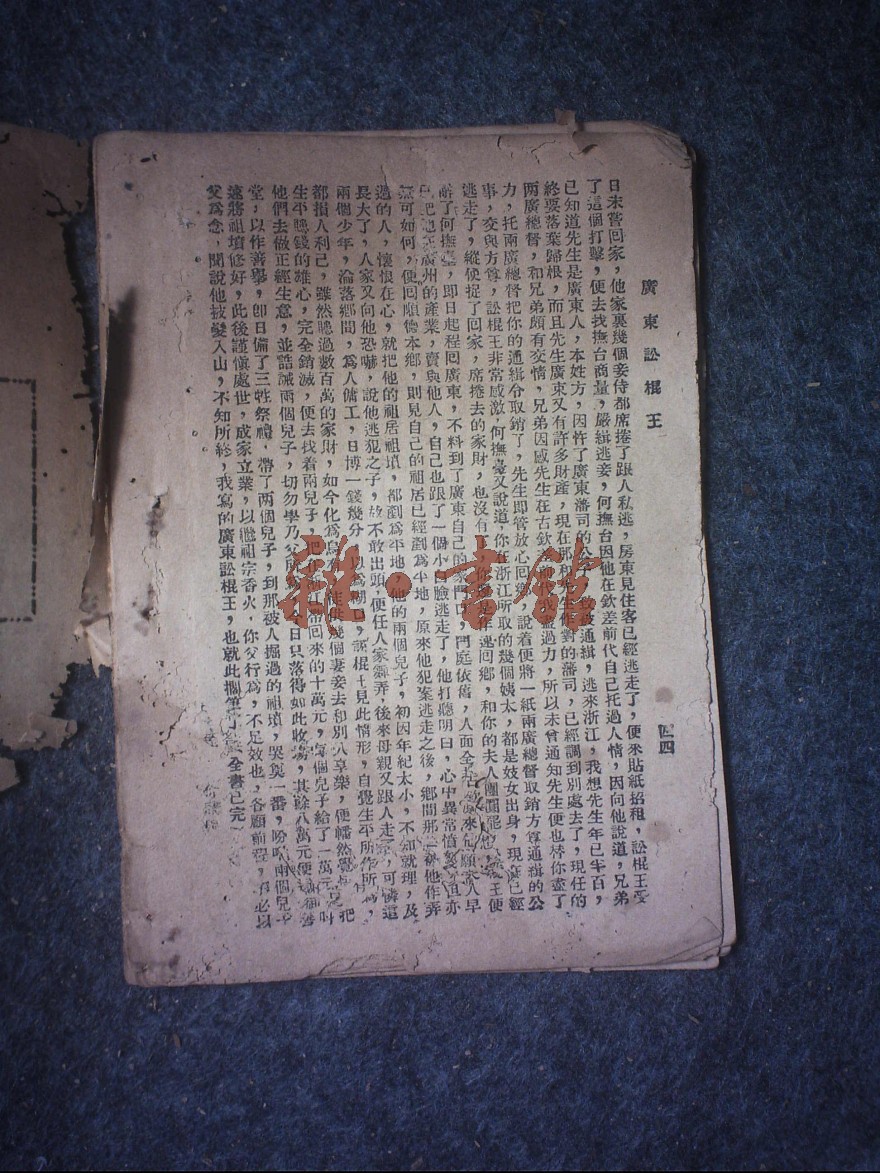 廣東訟棍王
四四
日未嘗回家，他家裏幾個妾侍都席捲了跟人私逃，房東見住客已經逃走了，便來貼紙招租，訟棍王受
了這個打擊，便去找撫台商量，嚴緝逃妾，何撫台因他在欽差前代自己托過人情，因向他說道，兄弟
已知道先生是廣東人，本姓方，因忤了廣東藩司的公 被通緝，逃來浙江，我想先生年已半百，
終要落葉歸根，而且先生廣東又有許多財產，現在那和先生作對的藩司，已經調到別處去了，現任的
兩廣總督，和兄弟頗有交情，兄弟因感先生在古欽差 我盡過力，所以未曾通知先生便也替你盡了
力，托兩廣總督把你的通緝令取銷了，先生即管放心回 ，說着便將一紙兩廣總督取銷方尊通緝的公
事，交與方尊，訟棍王非常感激，何撫臺又說道，你在浙江所取的幾個姨太，都是妓女出身，現 已經
逃走了，縱使捉了回家，席捲去的家財，也沒有了，你還是作速回鄉，和你的夫人團圓罷， 王便
辭了何撫臺，即日起程回廣東，不料到了廣東自己的家門口，門庭依舊，人面全 來 人早
已把他在廣州的產業，賣與他人，自己也跟了一個小白臉逃走了，他打聽明白，心中異常憤 亦
無可如何，便回順德本鄉，則見自己的祖居已經剷為平地，原來他犯案逃走之後，鄉間那一 他作弄
過的人，懷恨在心，就把他的祖居祖墳，都剷為平地，他的兩個兒子，初因年紀太小，不知就理，及
長大了，人家又向他恐嚇，說他逃犯之子，故不敢出頭，便任人家 弄，後來母親又跟人走 ，可憐這
兩個少年，淪落鄉間，為人傭工，日博一錢幾分 以為糊口，訟棍王見此情形，自覺生平所作所 ，
都損人利己，雖然賺過數百萬的家財，如今化為烏 供幾個妻妾去和別人享樂，便幡然覺 把
生平賺錢的雄心，完全銷滅，便去找着兩兒子，把在浙江帶回來的十萬元，每個兒子給了一萬元，
他們去做正經生意，並誥誡兩個兒子，切勿學乃父所為，今日只落得如此收場，其餘八萬元便
堂，以作善舉，即日備了三牲祭禮，帶了兩個兒子，到那被人掘過的祖墳，哭奠一番，吩咐兩個兒子
速將祖墳修好，此後謹慎處世，成家立業，以繼祖宗香火，你父行為，不足效也，各顧前程， 必以
父為念，聞說他披髮入山，不知所終，我寫的廣東訟棍王，也就此擱筆 （全書已完）
雜·書館